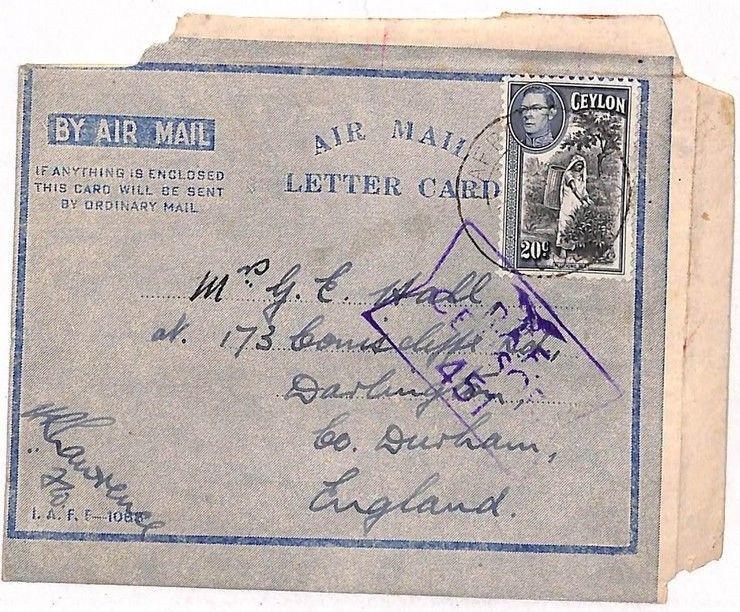 BY AIR MAIL
IF ANYTHING IS ENCLOSED
THIS CARD WILL BE SENT
BY ORDINARY MAIL
AIR MAIL
LETTER CARD
CEYLON
20c
Mrs G. E. Hall
at. 173 Coniscliffe Rd,
Darlington,
Co. Durham,
England.
R.A.F.
CENSOR
451
Lawrence
F/O
I. A. F. F—108